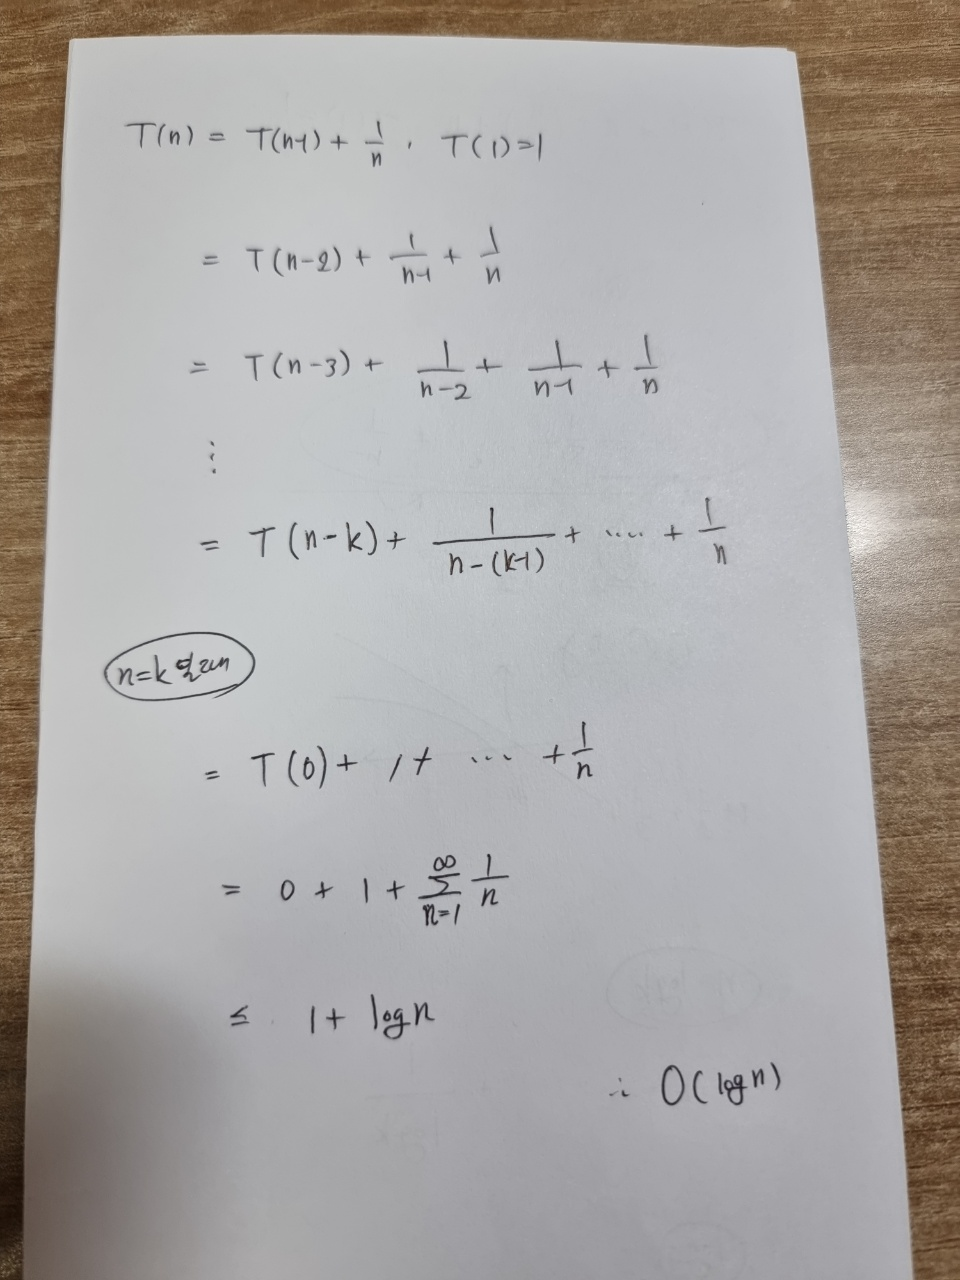 T(n) = T(n-1) + 1/n , T(1)=1
= T(n-2) + 1/(n-1) + 1/n
= T(n-3) + 1/(n-2) + 1/(n-1) + 1/n
⋮
= T(n-k) + 1/(n-(k-1)) + .... + 1/n
n=k
= T(0) + 1 + ... + 1/n
= 0 + 1 + ∑_{n=1}^{∞} 1/n
≤ 1 + log n
∴ O(log n)